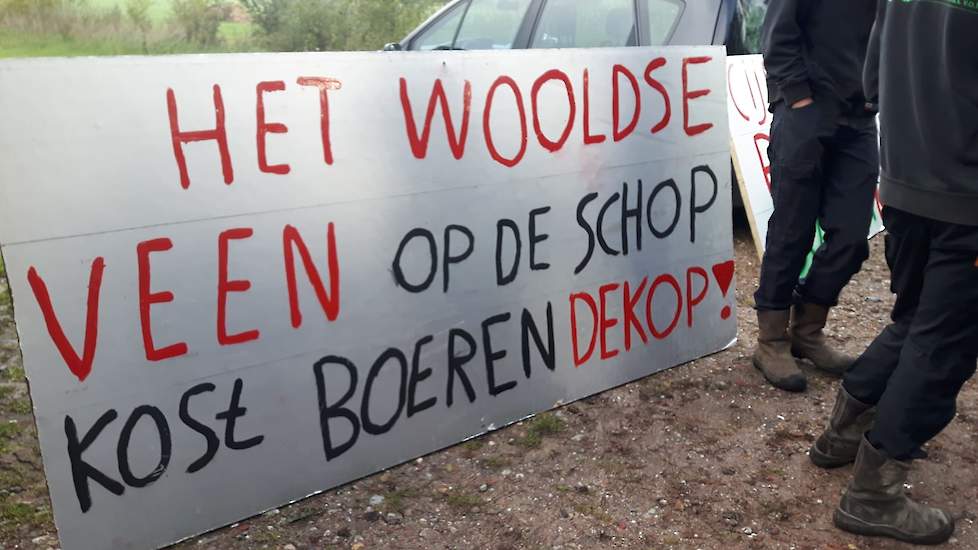 HET WOOLDSE
VEEN OP DE SCHOP
KOST BOEREN DE KOP!